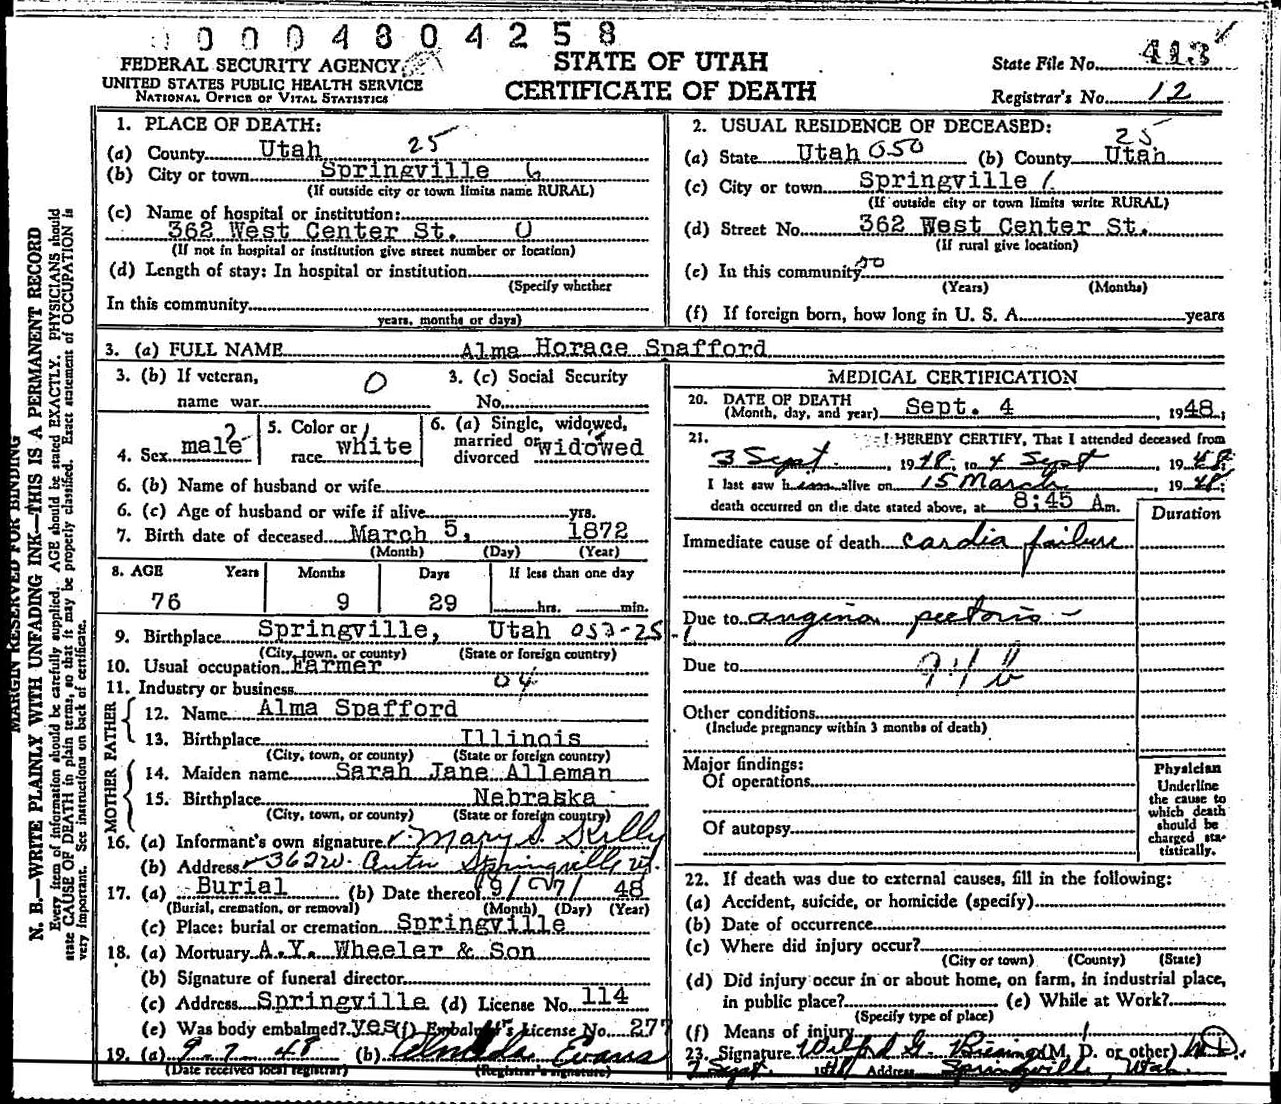 0 0 0 4 8 0 4 2 5 8
FEDERAL SECURITY AGENCY
UNITED STATES PUBLIC HEALTH SERVICE
NATIONAL OFFICE OF VITAL STATISTICS
STATE OF UTAH
CERTIFICATE OF DEATH
State File No. 413
Registrar's No. 12
MARGIN RESERVED FOR BINDING
N. B.—WRITE PLAINLY WITH UNFADING INK—THIS IS A PERMANENT RECORD
Every item of information should be carefully supplied. AGE should be stated EXACTLY. PHYSICIANS should
state CAUSE OF DEATH in plain terms, so that it may be properly classified. Exact statement of OCCUPATION is
very important. See instructions on back of certificate.
1. PLACE OF DEATH:
(a) County Utah 25
(b) City or town Springville 6
(If outside city or town limits name RURAL)
(c) Name of hospital or institution:
362 West Center St. 0
(If not in hospital or institution give street number or location)
(d) Length of stay: In hospital or institution
(Specify whether
In this community
years, months or days)
2. USUAL RESIDENCE OF DECEASED:
25
(a) State Utah 050 (b) County Utah
(c) City or town Springville 1
(If outside city or town limits write RURAL)
(d) Street No. 362 West Center St.
(If rural give location)
(e) In this community 50
(Years) (Months)
(f) If foreign born, how long in U. S. A. years
3. (a) FULL NAME Alma Horace Spafford
3. (b) If veteran, 0 3. (c) Social Security
name war No.
4. Sex male 2 5. Color or race white 1 6. (a) Single, widowed, married or divorced widowed
6. (b) Name of husband or wife
6. (c) Age of husband or wife if alive yrs.
7. Birth date of deceased March 5, 1872
(Month) (Day) (Year)
8. AGE Years Months Days If less than one day
76 9 29 hrs. min.
9. Birthplace Springville, Utah 053-25-1
(City, town, or county) (State or foreign country)
10. Usual occupation Farmer
11. Industry or business 04
FATHER
12. Name Alma Spafford
13. Birthplace Illinois
(City, town, or county) (State or foreign country)
MOTHER
14. Maiden name Sarah Jane Alleman
15. Birthplace Nebraska
(City, town, or county) (State or foreign country)
16. (a) Informant's own signature Mary S.
(b) Address 362 W. Center Springville Ut.
17. (a) Burial (b) Date thereof 9/ 7/ 48
(Burial, cremation, or removal) (Month) (Day) (Year)
(c) Place: burial or cremation Springville
18. (a) Mortuary A.Y. Wheeler & Son
(b) Signature of funeral director
(c) Address Springville (d) License No. 114
(e) Was body embalmed? yes (f) Embalmer's License No. 277
19. (a) 9-7-48 (b) Evans
(Date received local registrar) (Registrar's signature)
MEDICAL CERTIFICATION
20. DATE OF DEATH
(Month, day, and year) Sept. 4, 1948;
21. I HEREBY CERTIFY, That I attended deceased from
3 Sept, 1948, to 4 Sept 1948;
I last saw him alive on 15 March 1948;
death occurred on the date stated above, at 8:45 Am.
Duration
Immediate cause of death cardia failure
Due to angina pectoris
Due to 94 b
Other conditions
(Include pregnancy within 3 months of death)
Major findings:
Of operations
Of autopsy
Physician
Underline
the cause to
which death
should be
charged sta-
tistically.
22. If death was due to external causes, fill in the following:
(a) Accident, suicide, or homicide (specify)
(b) Date of occurrence
(c) Where did injury occur?
(City or town) (County) (State)
(d) Did injury occur in or about home, on farm, in industrial place,
in public place? (e) While at Work?
(Specify type of place)
(f) Means of injury
23. Signature Wilford G. (M. D. or other) M.D.
7 Sept. 1948 Address Springville, Utah